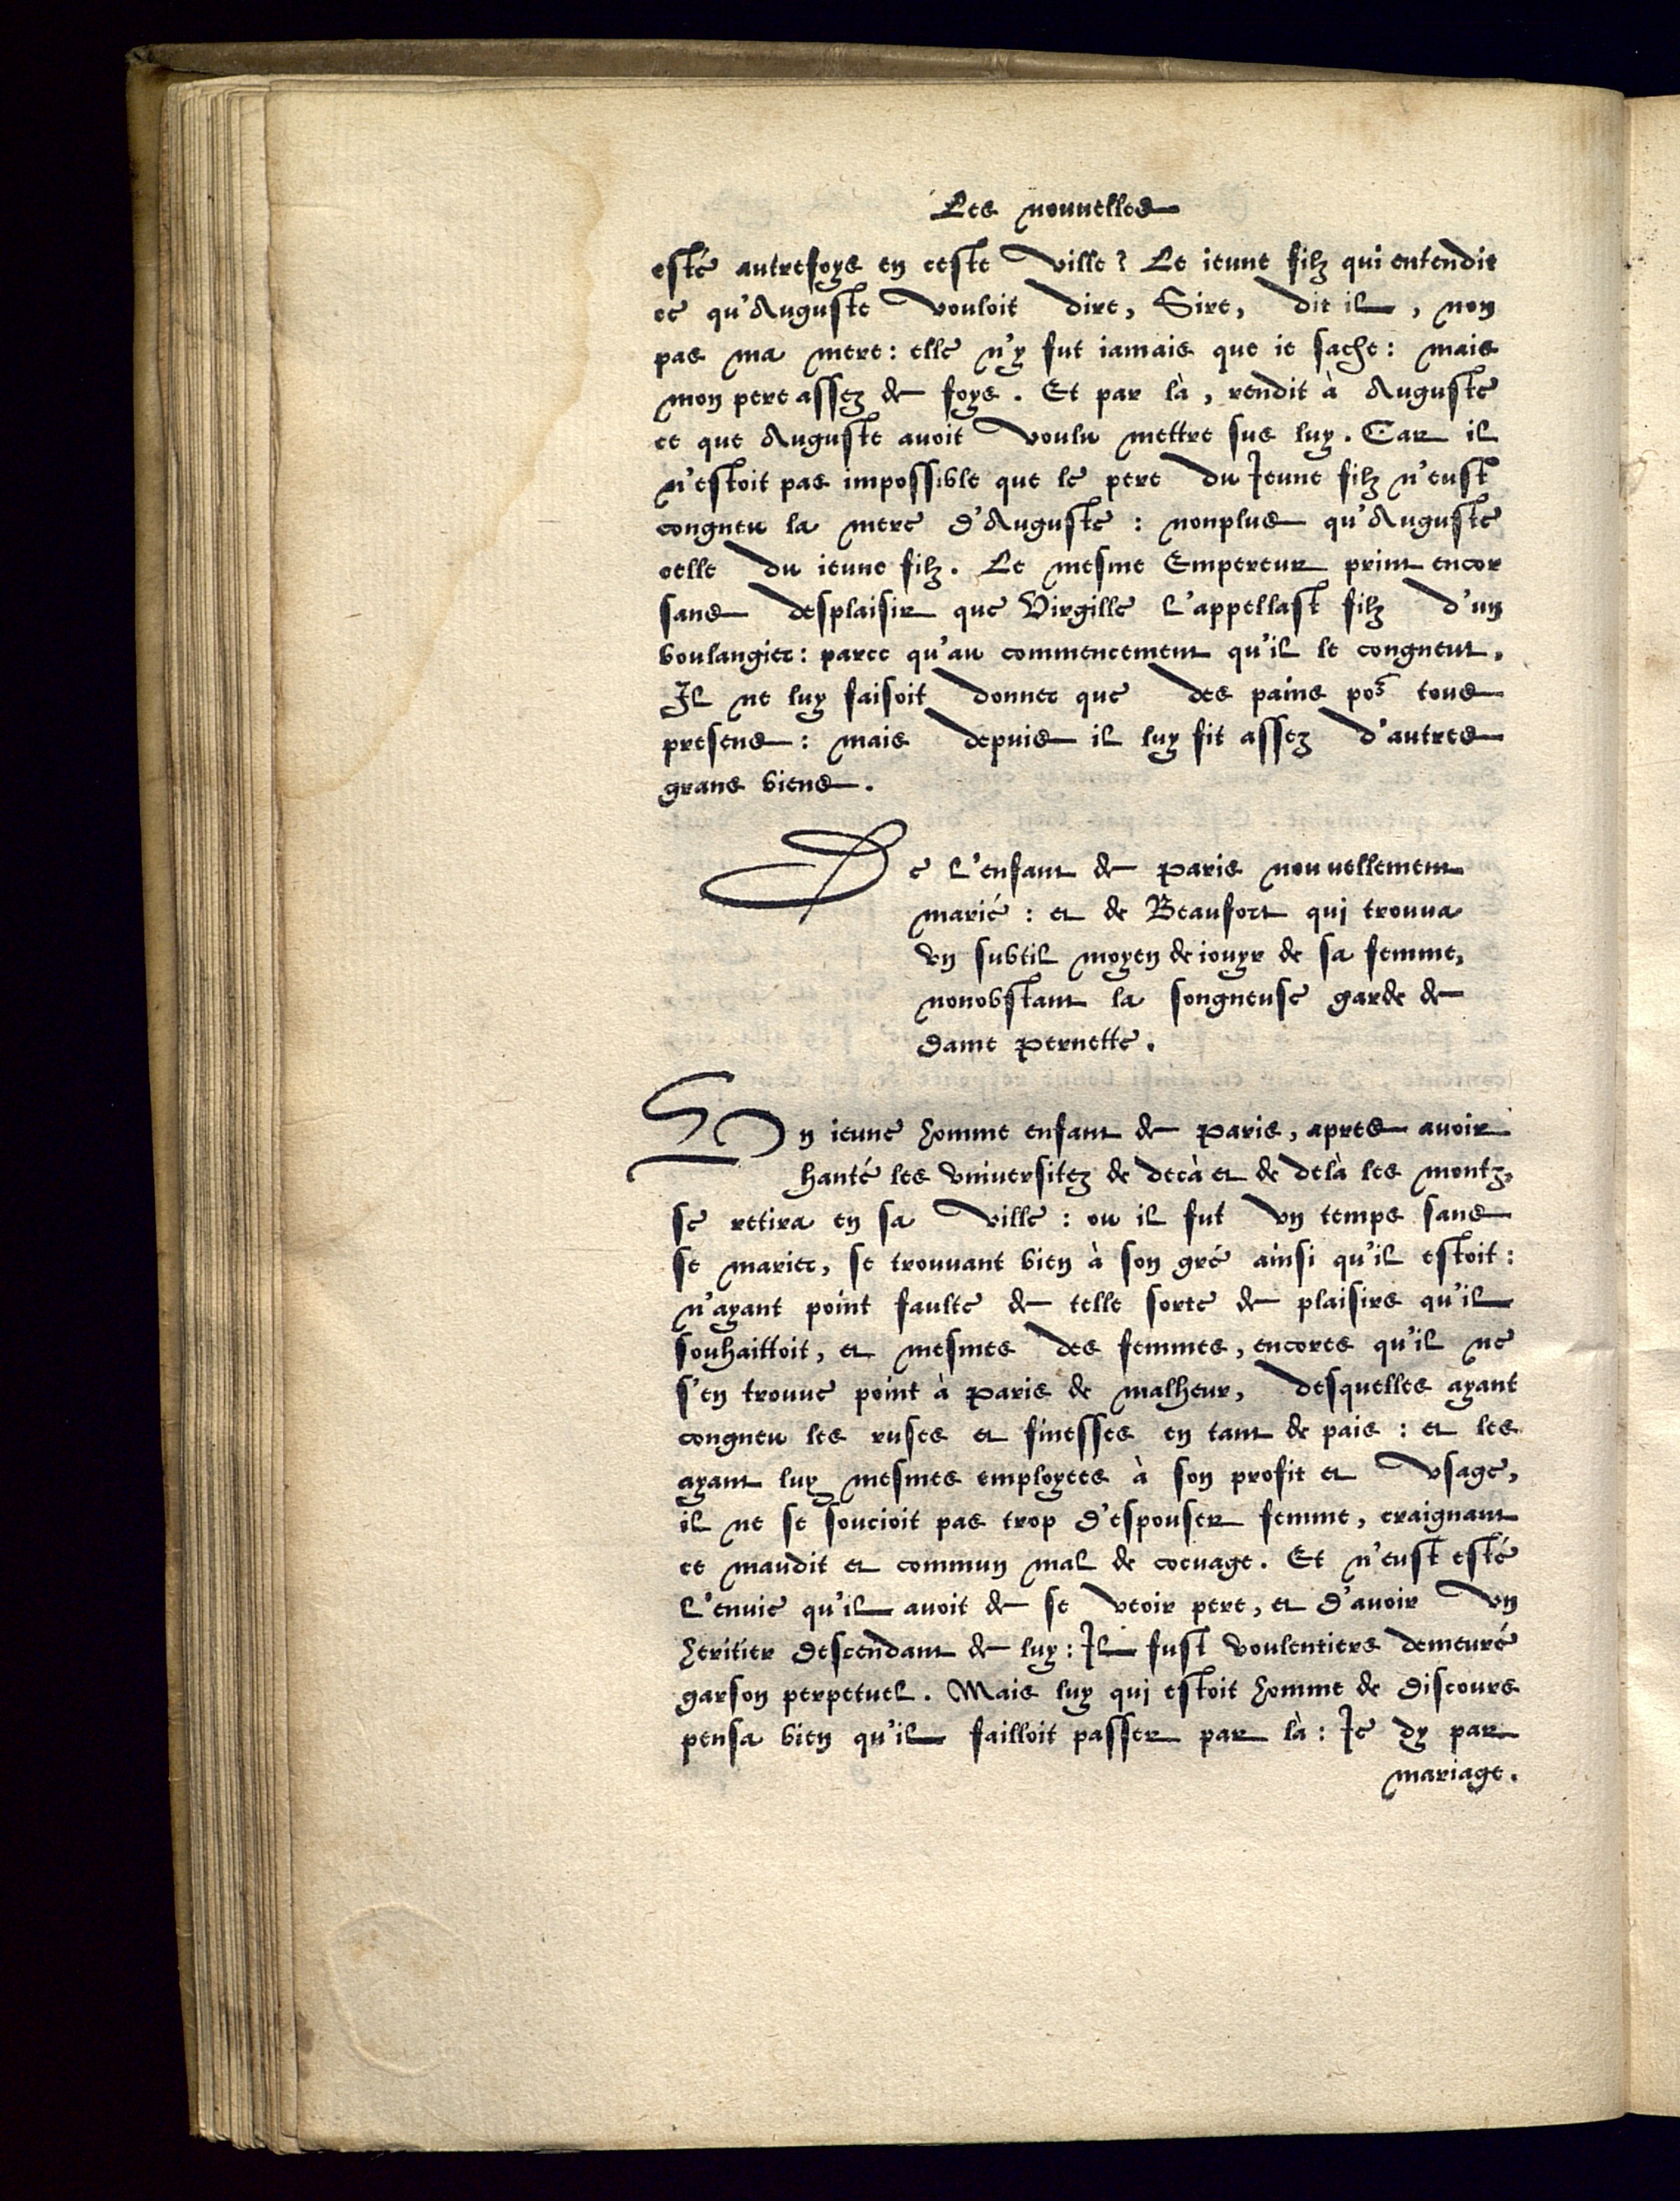 Les nouuelles
esté autrefoys en ceste ville? Le ieune filz qui entendit
ce qu'Auguste vouloit dire, Sire, dit il, non
pas ma mere: elle n'y fut iamais que ie sache: mais
mon pere assez de foys. Et par là, rendit à Auguste
ce que Auguste auoit voulu mettre sus luy. Car il
n'estoit pas impossible que le pere du Ieune filz n'eust
congneu la mere d'Auguste: nonplus qu'Auguste
celle du ieune filz. Le mesme Empereur print encor
sans desplaisir que Virgille l'appellast filz d'un
boulangier: parce qu'au commencement qu'il le congneut,
Il ne luy faisoit donner que des pains por tous
presens: mais depuis il luy fit assez d'autres
grans biens.
De l'enfant de Paris nouuellement
marié: et de Beaufort qui trouua
vn subtil moyen de iouyr de sa femme,
nonobstant la songneuse garde de
dame Pernette.
Vn ieune homme enfant de Paris, apres auoir
hanté les vniuersitez de decà et de delà les montz,
se retira en sa ville: ou il fut vn temps sans
se marier, se trouuant bien à son gré ainsi qu'il estoit:
n'ayant point faulte de telle sorte de plaisirs qu'il
souhaittoit, et mesmes des femmes, encores qu'il ne
s'en trouue point à Paris de malheur, desquelles ayant
congneu les ruses et finesses en tant de pais: et les
ayant luy mesmes employees à son profit et vsage,
il ne se soucioit pas trop d'espouser femme, craignant
ce maudit et commun mal de cocuage. Et n'eust esté
l'enuie qu'il auoit de se veoir pere, et d'auoir vn
heritier descendant de luy: Il fust voulentiers demeuré
garson perpetuel. Mais luy qui estoit homme de discours
pensa bien qu'il failloit passer par là: Ie dy par
mariage.